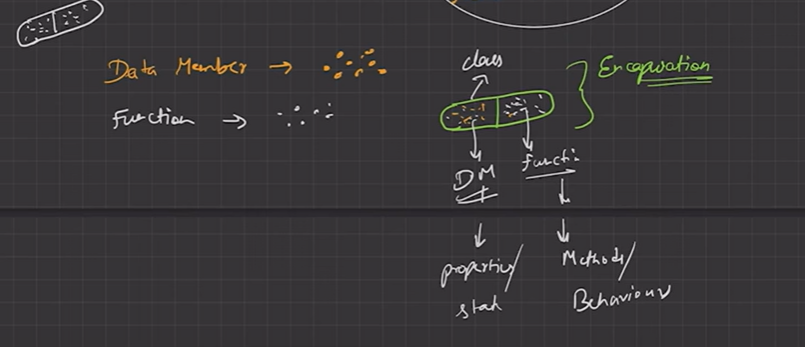 Data Member →
Function →
class
Encapsulation
DM
function
properties/
state
Methods/
Behaviour